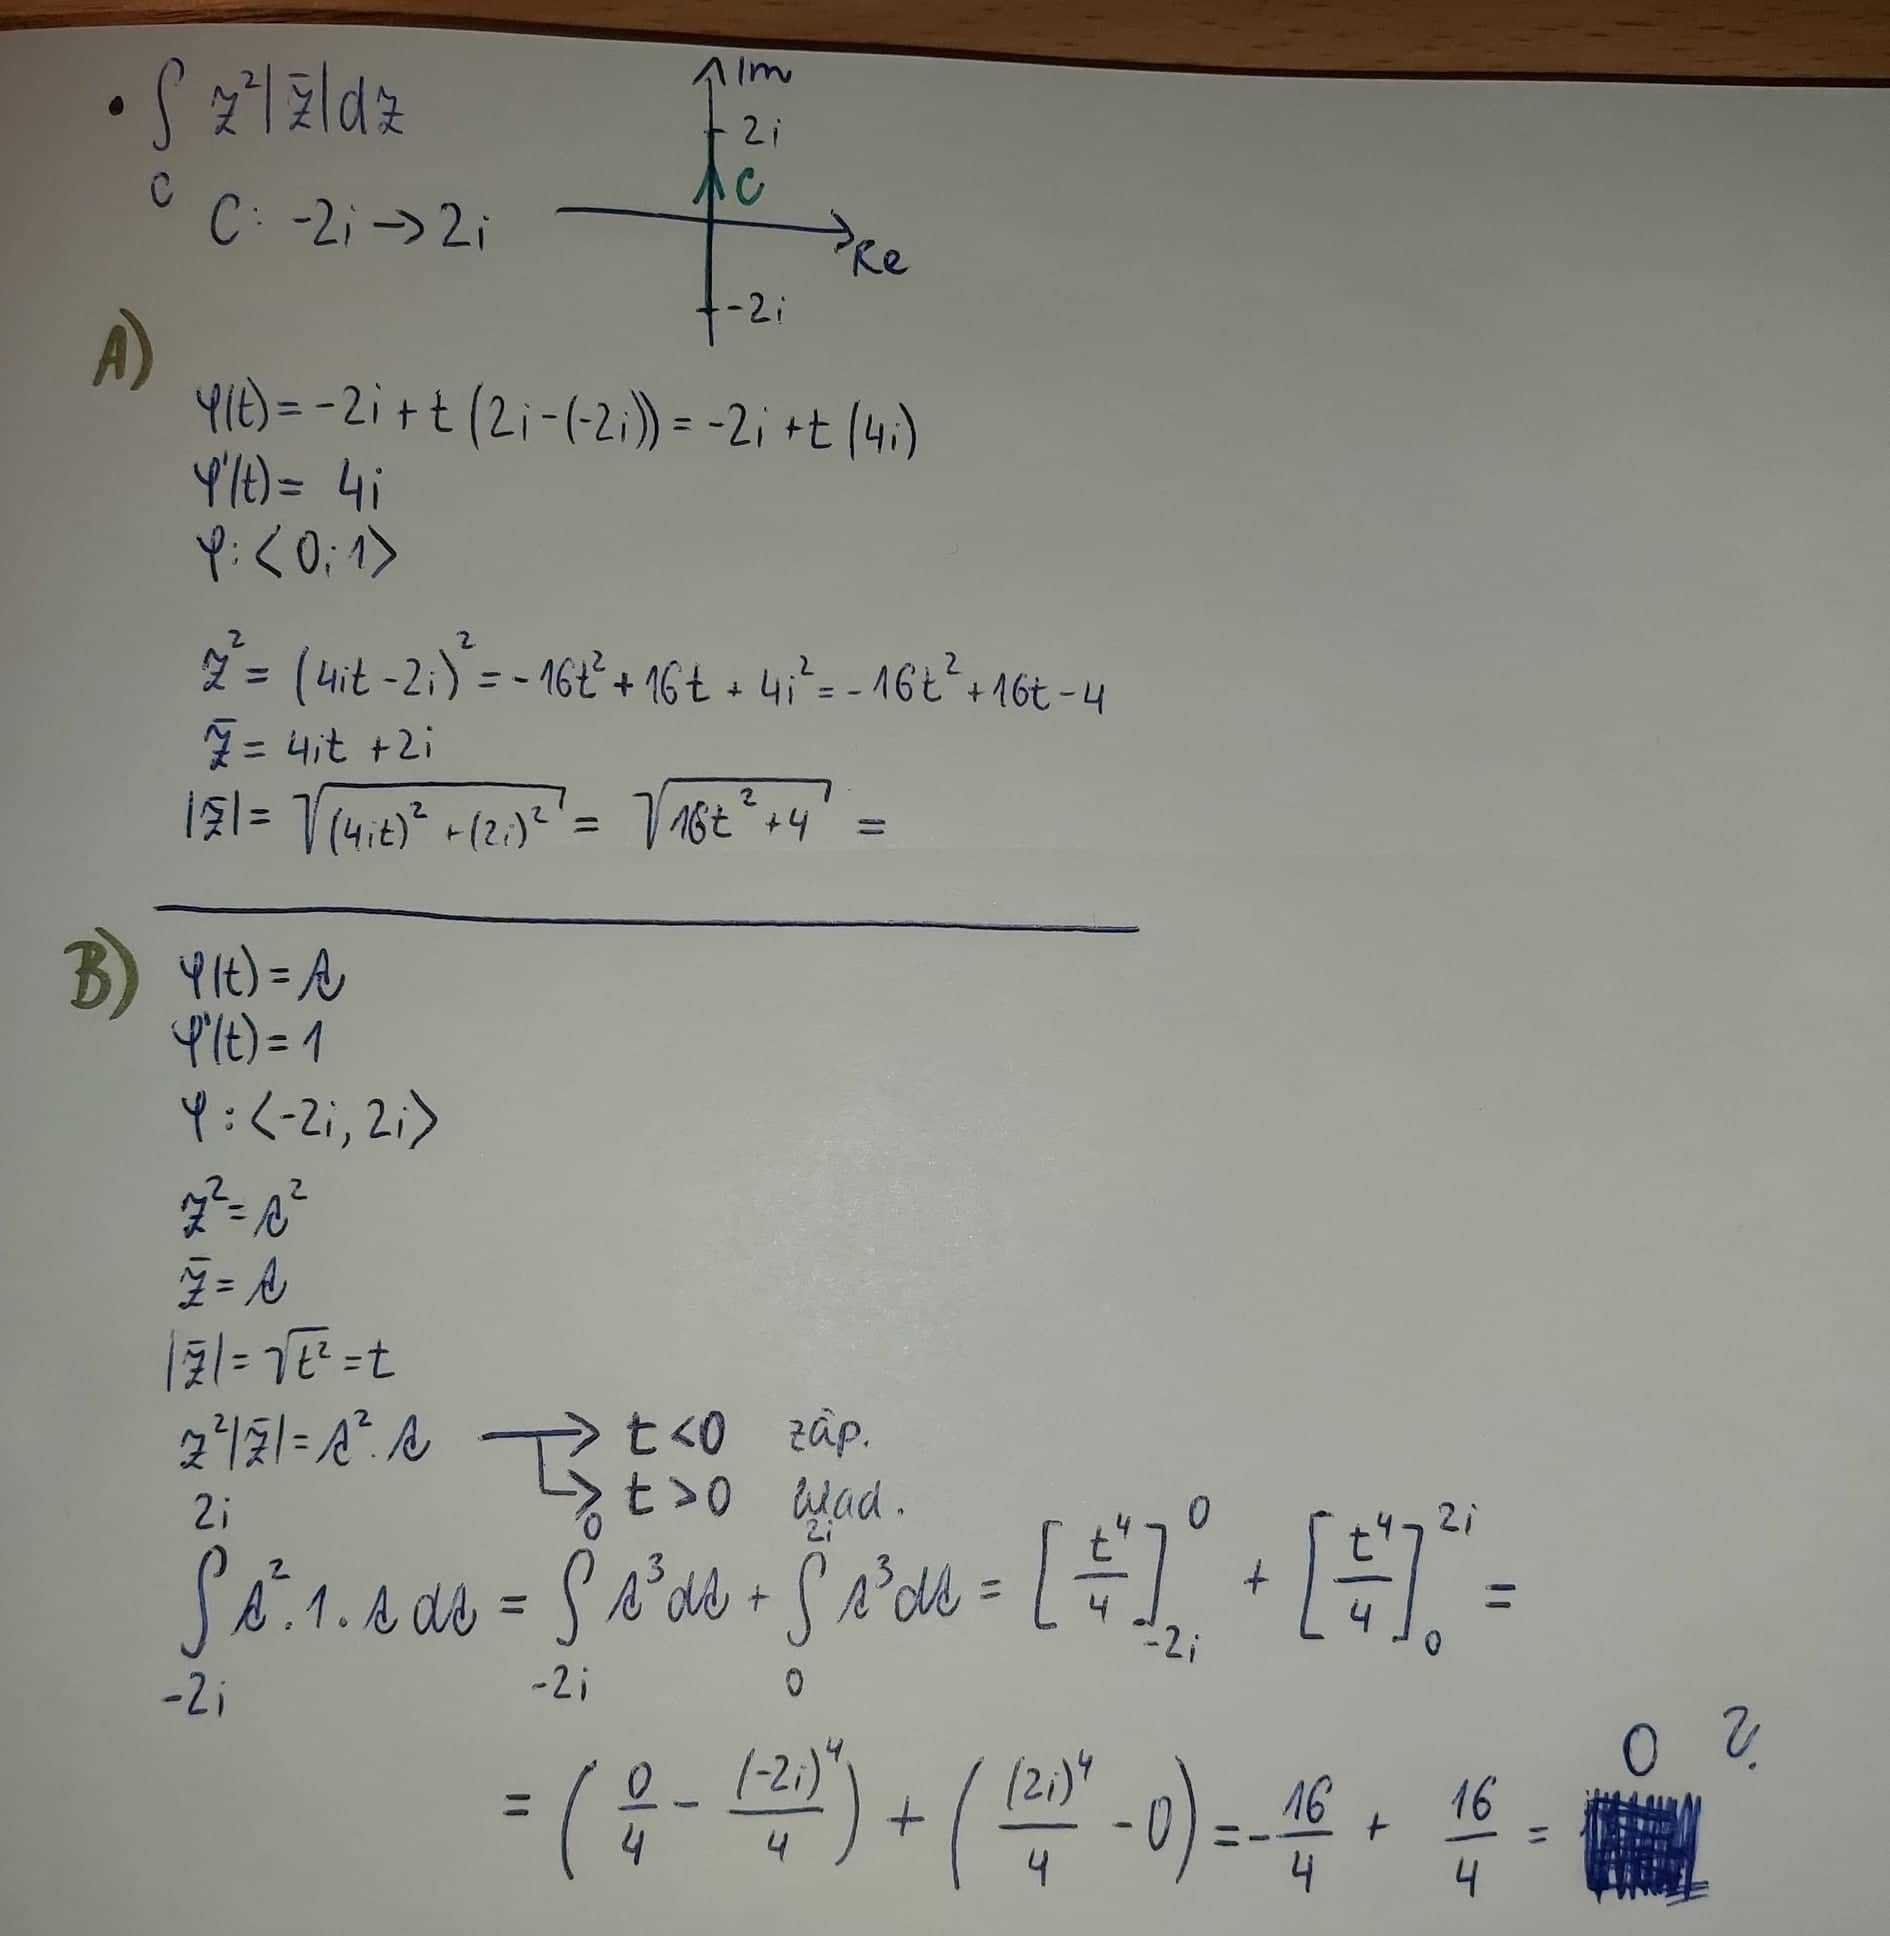 • ∫ z²|z̄|dz
C
C: -2i → 2i
Im
2i
C
Re
-2i
A)
φ(t) = -2i + t(2i-(-2i)) = -2i + t(4i)
φ'(t) = 4i
φ: <0;1>
z² = (4it - 2i)² = -16t² + 16t + 4i² = -16t² + 16t - 4
z̄ = 4it + 2i
|z̄| = √((4it)² + (2i)²) = √(16t² + 4) =
B) φ(t) = t
φ'(t) = 1
φ: <-2i, 2i>
z² = t²
z̄ = t
|z̄| = √t² = t
z²|z̄| = t² . t → t < 0 záp.
→ t > 0 klad.
2i 0 2i
∫ t² . 1 . t dt = ∫ t³dt + ∫ t³dt = [t⁴/4]⁰₋₂ᵢ + [t⁴/4]²ⁱ₀ =
-2i -2i 0
= (0/4 - (-2i)⁴/4) + ((2i)⁴/4 - 0) = -16/4 + 16/4 = 0 ?